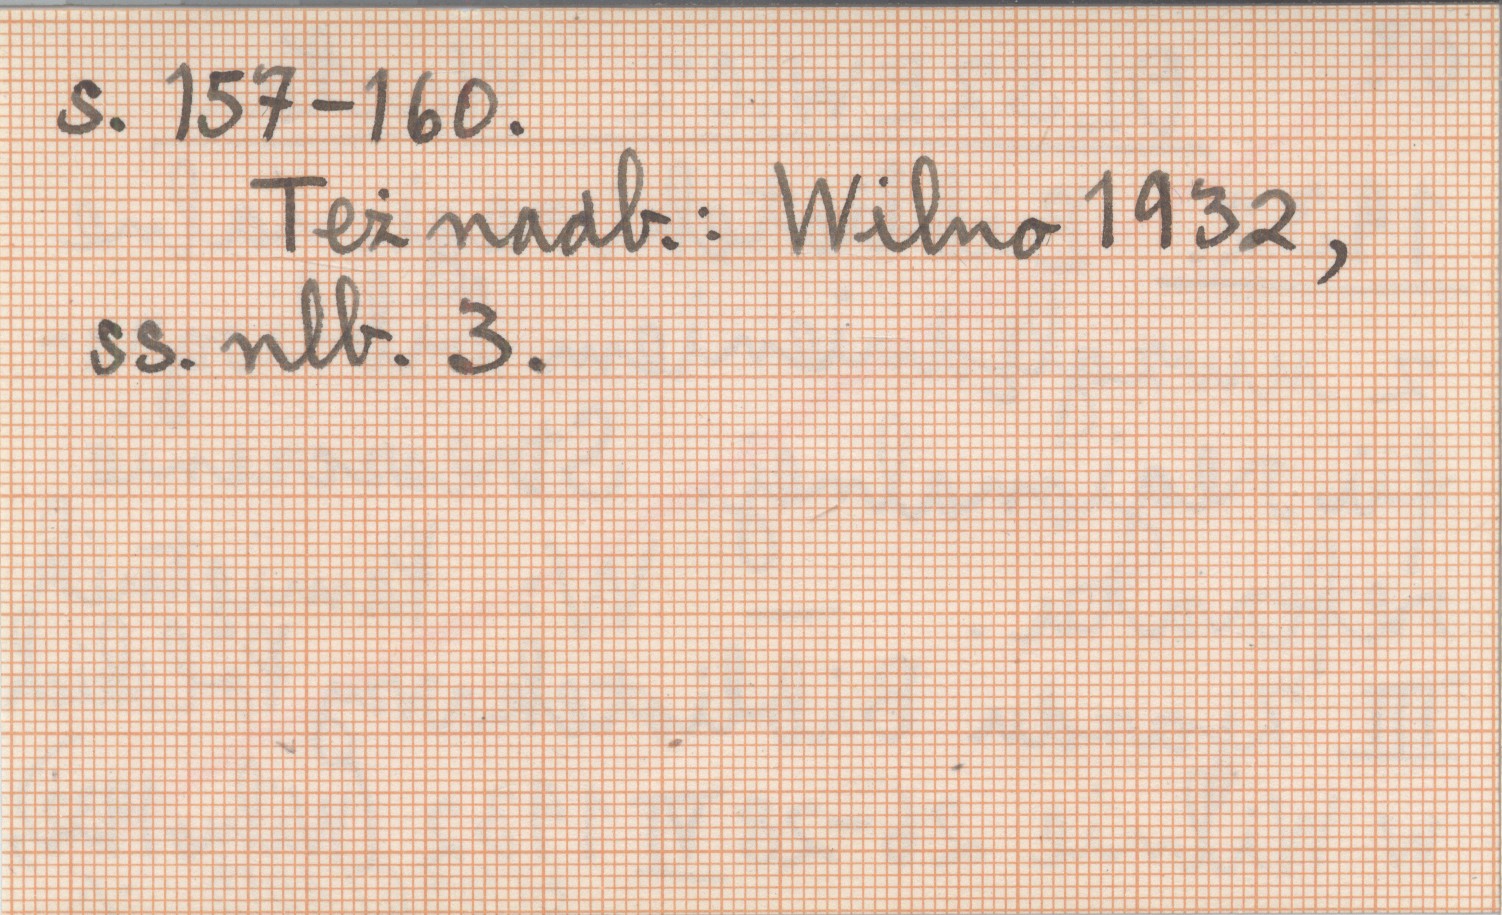 s. 157-160.
Też nadb.: Wilno 1932,
ss. nlb. 3.